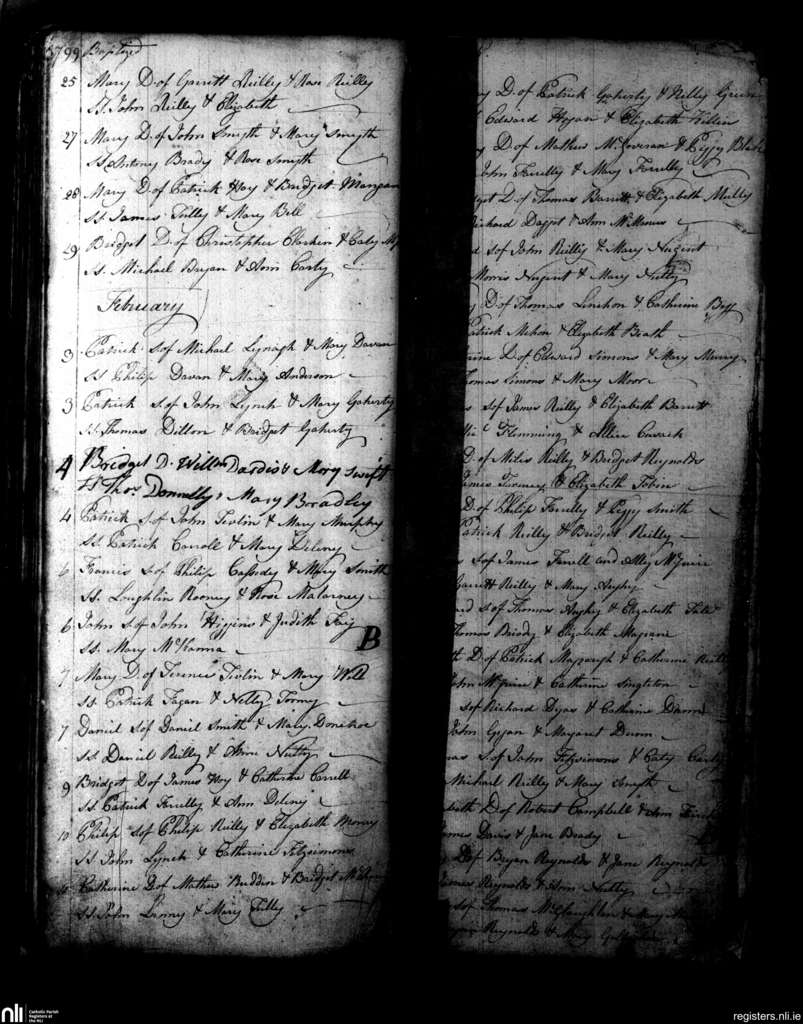 1799 Baptized
25 Mary D. of Garrett Reilly & Rose Reilly
Ss. John Reilly & Elizabeth
27 Mary D. of John Smyth & Mary Smyth
Ss. Antony Brady & Rose Smyth
28 Mary D. of Patrick Hoy & Bridget Mangan
Ss. James Tully & Mary Bell
29 Bridget D. of Christopher Clarkin & Caty
Ss. Michael Bryan & Ann Carty
February
3 Patrick S. of Michael Lynagh & Mary Davan
Ss. Philip Davan & Mary Anderson
3 Patrick S. of John Lynch & Mary Gaherty
Ss. Thomas Dillon & Bridget Gaherty
4 Bridget D. Willm Dardis & Mary Swift
Ss Thos. Donnelly & Mary Bradley
4 Patrick S. of John Tivlin & Mary Murphy
Ss. Patrick Carroll & Mary Deleny
6 Francis S. of Philip Cassidy & Mary Smith
Ss. Loughlin Rooney & Rose Malarney
6 John S. of John Higgins & Judith Fay
Ss. Mary McKanna B
7 Mary D. of Terence Tivlin & Mary Will
Ss. Patrick Fagan & Nelly Tormy
7 Daniel S. of Daniel Smith & Mary Donehoe
Ss. Daniel Reilly & Anne Nutty
9 Bridget D. of James Hoy & Catherine Correll
Ss. Patrick Ferrilly & Ann Deleny
10 Philip S. of Philip Reilly & Elizabeth
Ss. John Lynch & Catherine Fitzsimons
Catherine D. of Mathew & Bridget
Ss. John & Mary Tilly
D. of Patrick Gaherty & Nelly
Edward Hogan & Elizabeth
D. of Mathew & Peggy
John Ferrilly & Mary Ferrilly
D. of Thomas Barrett & Elizabeth Mully
Richard Dagget & Ann McManus
S. of John Reilly & Mary Nugent
Morris Nugent & Mary Nutty
D. of Thomas Linehon & Catherine
Patrick Mehon & Elizabeth Heath
D. of Edward Simons & Mary Murray
Thomas Simons & Mary Moore
S. of James Reilly & Elizabeth Barrett
Flemming & Allice Cusack
D. of Miles Reilly & Bridget Reynolds
James & Elizabeth Tobin
D. of Philip Ferrilly & Peggy Smith
Patrick Reilly & Bridget Reilly
S. of James Farrell and Alley McGuire
Garrett Reilly & Mary
S. of Thomas & Elizabeth
Thomas Briody & Elizabeth
D. of Patrick & Catherine
John McGuire & Catherine Singleton
S. of Richard Dyas & Catherine
John & Margaret Dunn
S. of John Fitzsimons & Caty Carty
Michael Reilly & Mary Smyth
D. of Robert Campbell & Ann
James Davis & Jane Brady
D. of Bryan Reynolds & Jane Reynolds
James Reynolds & Ann Nulty
S. of Thomas McGlaughlin & Mary
Reynolds & Mary
nli
Catholic Parish
Registers at
the NLI
registers.nli.ie